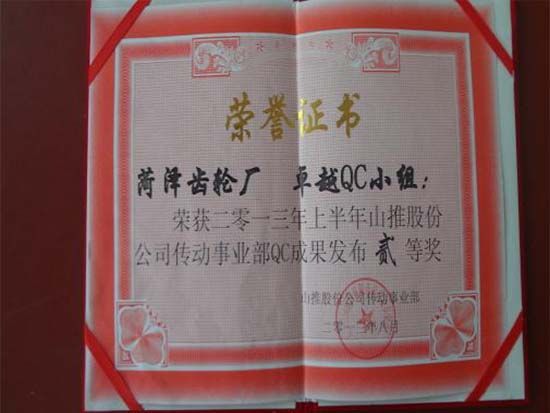 荣誉证书
菏泽齿轮厂 卓越QC小组:
荣获二零一三年上半年山推股份
公司传动事业部QC成果发布 贰 等奖
山推股份公司传动事业部
二零一三年八月